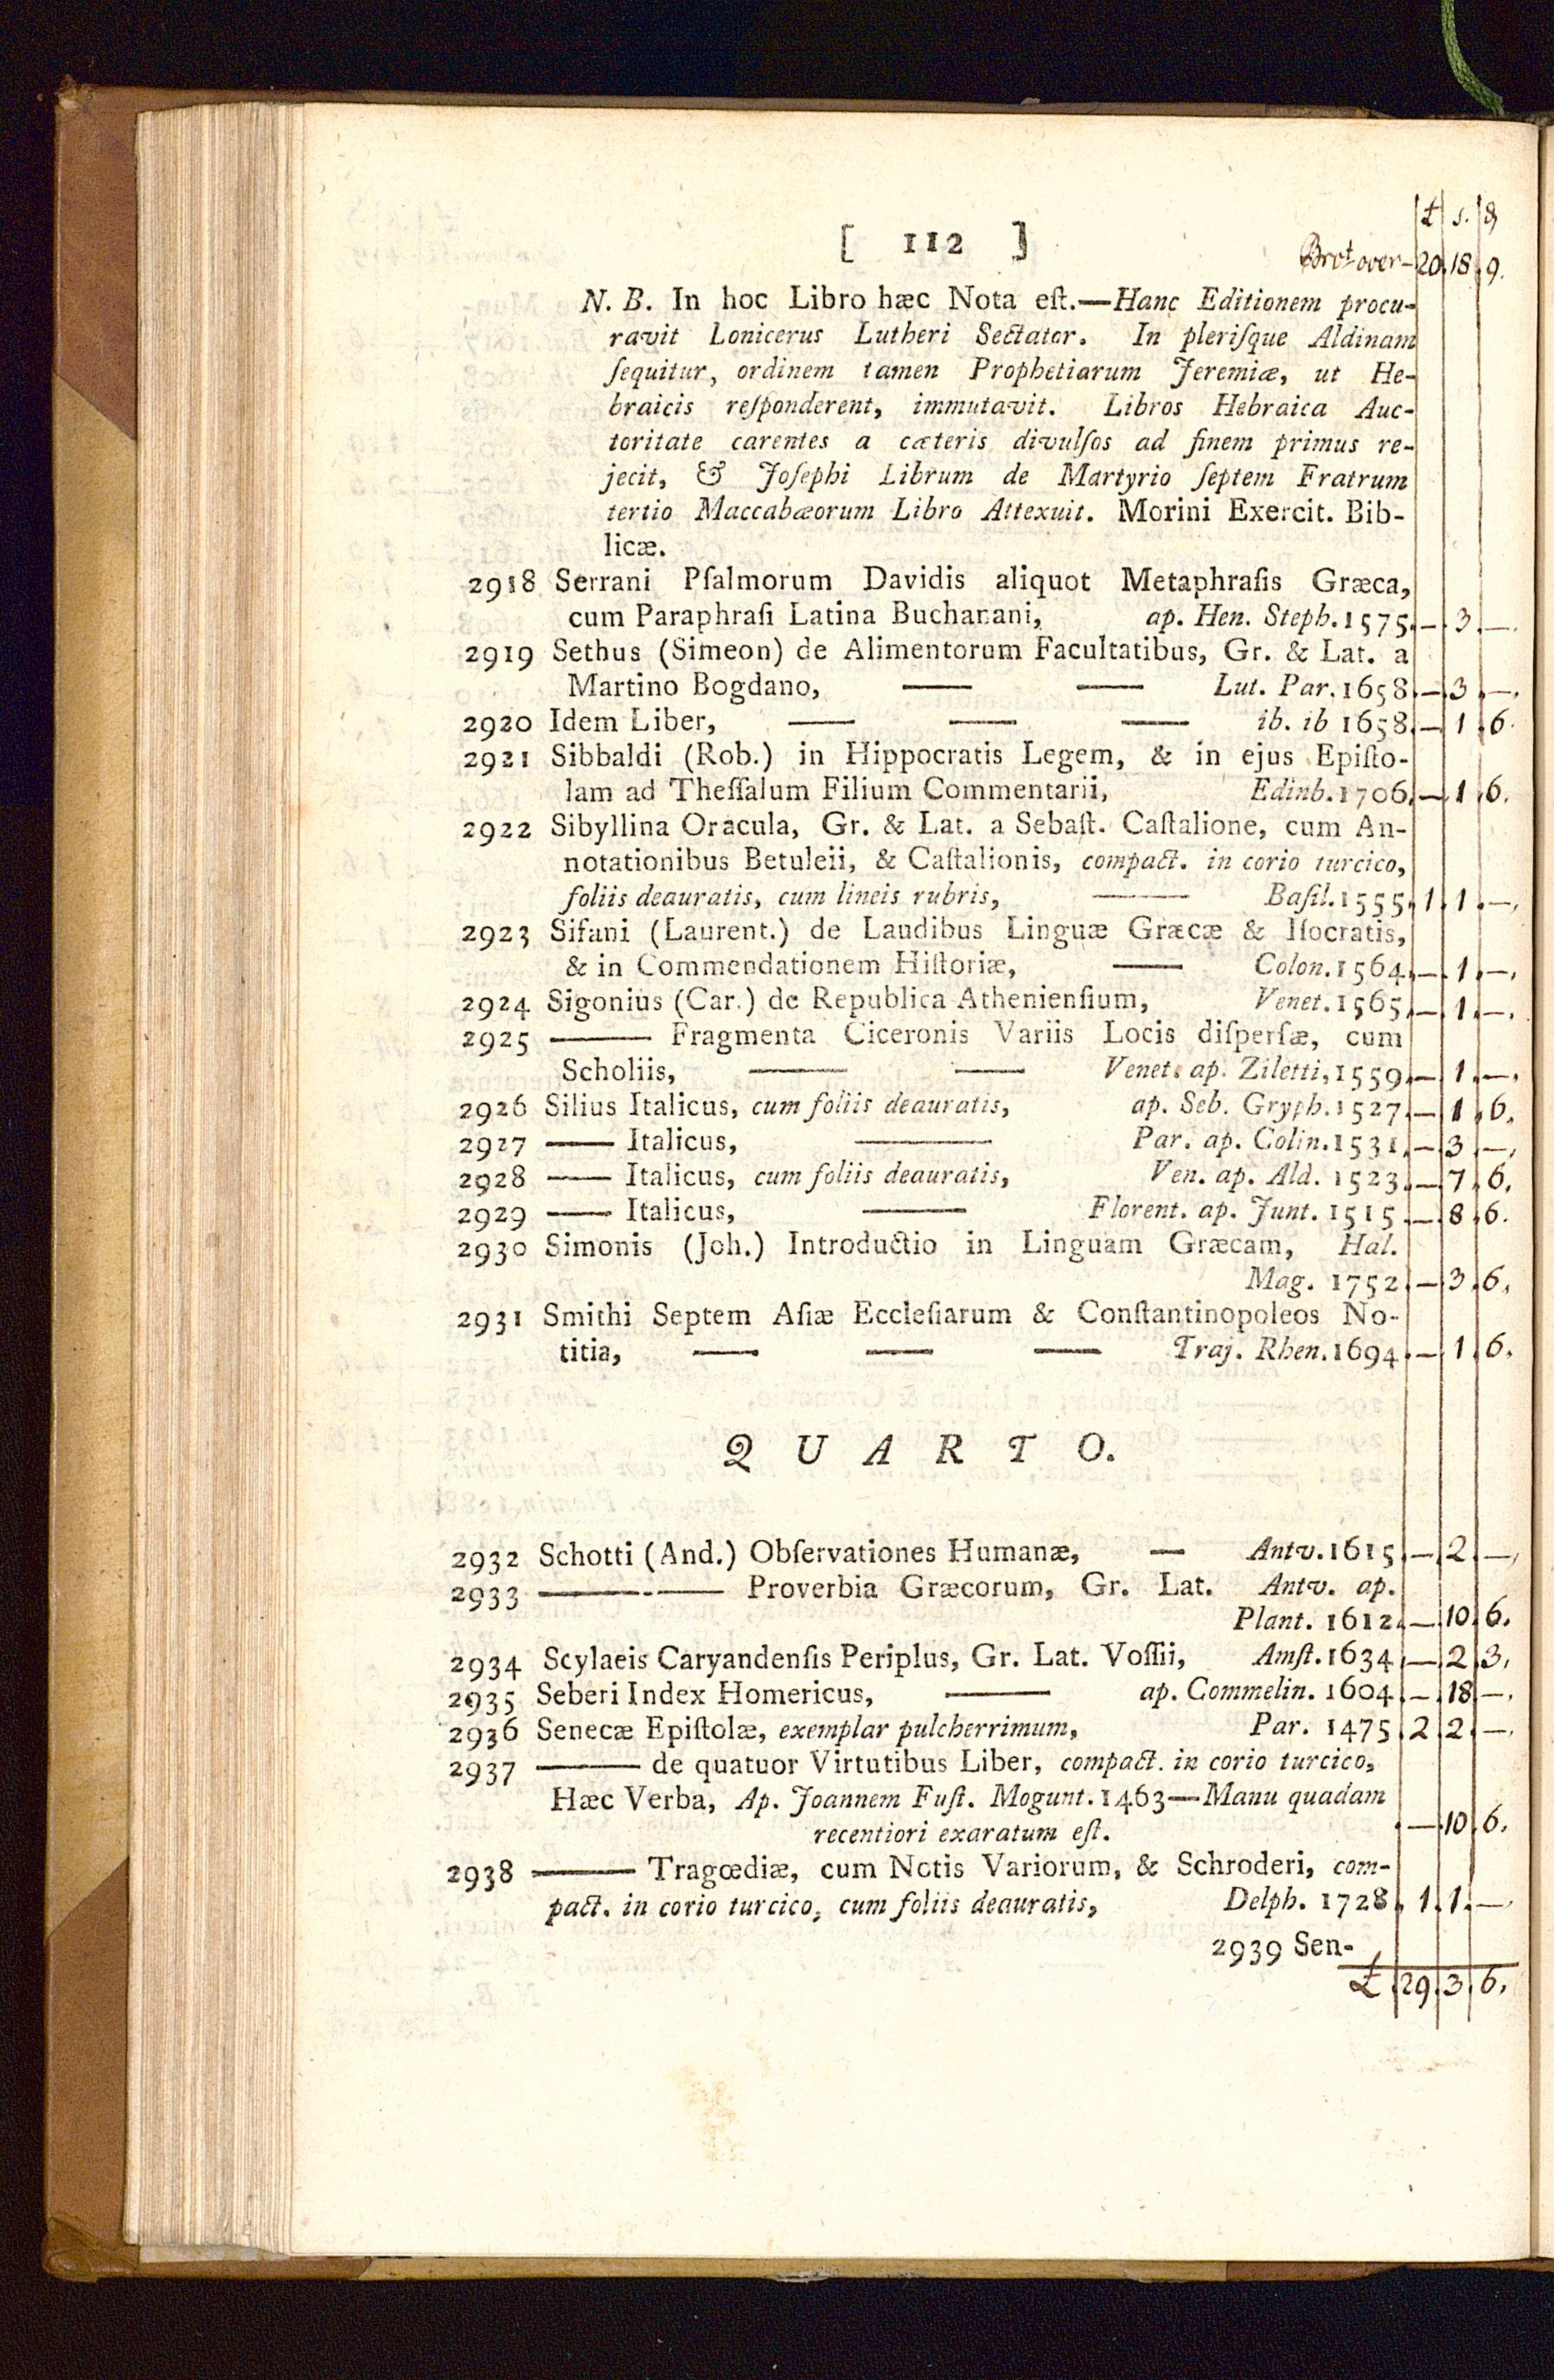 £ s. d
[ 112 ] Brot over - 20. 18. 9.
N. B. In hoc Libro hæc Nota eſt.—Hanc Editionem procu-
ravit Lonicerus Lutheri Sectator. In pleriſque Aldinam
ſequitur, ordinem tamen Prophetiarum Jeremiæ, ut He-
braicis reſponderent, immutavit. Libros Hebraica Auc-
toritate carentes a cæteris divulſos ad finem primus re-
jecit, & Joſephi Librum de Martyrio ſeptem Fratrum
tertio Maccabæorum Libro Attexuit. Morini Exercit. Bib-
licæ.
2918 Serrani Pſalmorum Davidis aliquot Metaphraſis Græca,
cum Paraphraſi Latina Buchanani, ap. Hen. Steph. 1575. — 3. —.
2919 Sethus (Simeon) de Alimentorum Facultatibus, Gr. & Lat. a
Martino Bogdano, — — Lut. Par. 1658. — 3. —.
2920 Idem Liber, — — — ib. ib 1658. — 1. 6.
2921 Sibbaldi (Rob.) in Hippocratis Legem, & in ejus Epiſto-
lam ad Theſſalum Filium Commentarii, Edinb. 1706. — 1. 6.
2922 Sibyllina Oracula, Gr. & Lat. a Sebaſt. Caſtalione, cum An-
notationibus Betuleii, & Caſtalionis, compact. in corio turcico,
foliis deauratis, cum lineis rubris, — Baſil. 1555. 1. 1. —.
2923 Sifani (Laurent.) de Laudibus Linguæ Græcæ & Iſocratis,
& in Commendationem Hiſtoriæ, — Colon. 1564. — 1. —.
2924 Sigonius (Car.) de Republica Athenienſium, Venet. 1565. — 1. —.
2925 — Fragmenta Ciceronis Variis Locis diſperſæ, cum
Scholiis, — — Venet. ap. Ziletti, 1559. — 1. —.
2926 Silius Italicus, cum foliis deauratis, ap. Seb. Gryph. 1527. — 1. 6.
2927 — Italicus, — Par. ap. Colin. 1531. — 3. —.
2928 — Italicus, cum foliis deauratis, Ven. ap. Ald. 1523. — 7. 6.
2929 — Italicus, — Florent. ap. Junt. 1515. — 8. 6.
2930 Simonis (Joh.) Introductio in Linguam Græcam, Hal.
Mag. 1752. — 3. 6.
2931 Smithi Septem Aſiæ Eccleſiarum & Conſtantinopoleos No-
titia, — — — Traj. Rhen. 1694. — 1. 6.
QUARTO.
2932 Schotti (And.) Obſervationes Humanæ, — Antv. 1615. — 2. —.
2933 — Proverbia Græcorum, Gr. Lat. Antv. ap.
Plant. 1612. — 10. 6.
2934 Scylaeis Caryandenſis Periplus, Gr. Lat. Voſſii, Amſt. 1634. — 2. 3.
2935 Seberi Index Homericus, — ap. Commelin. 1604. — 18. —.
2936 Senecæ Epiſtolæ, exemplar pulcherrimum, Par. 1475. 2. 2. —.
2937 — de quatuor Virtutibus Liber, compact. in corio turcico,
Hæc Verba, Ap. Joannem Fuſt. Mogunt. 1463—Manu quadam
recentiori exaratum eſt. — 10. 6.
2938 — Tragœdiæ, cum Notis Variorum, & Schroderi, com-
pact. in corio turcico, cum foliis deauratis, Delph. 1728. 1. 1. —.
2939 Sen-
£. 29. 3. 6.